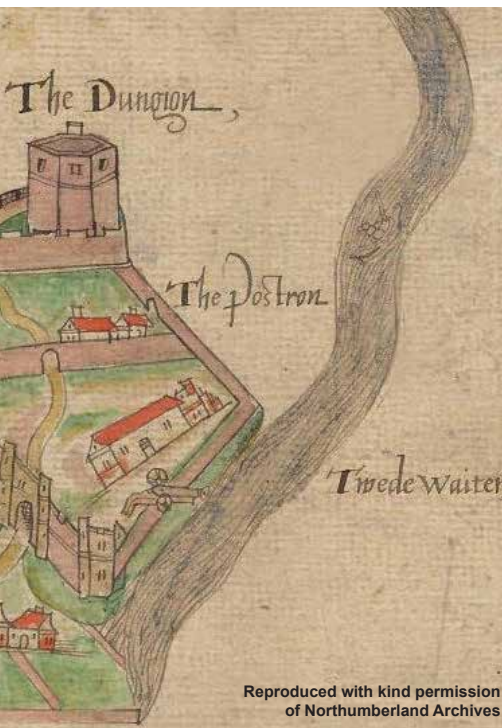 The Dungion,
The Postron
Twede Waiter
Reproduced with kind permission
of Northumberland Archives